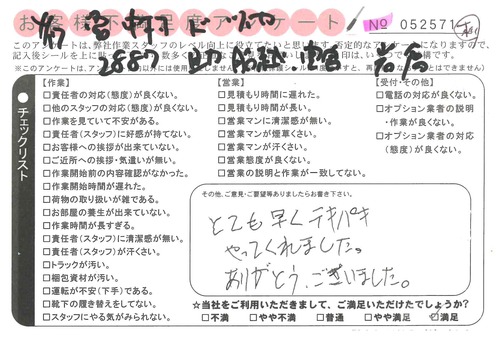 お客様不満足度アンケート
No 052571
このアンケートは、弊社作業スタッフのレベル向上に役立てたいと思います。否定的なアンケートになりますので、
【作業】
□責任者の対応(態度)が良くない。
□他のスタッフの対応(態度)が良くない。
□作業を見ていて不安がある。
□責任者(スタッフ)に好感が持てない。
□お客様への挨拶が出来ていない。
□ご近所への挨拶・気遣いが無い。
□作業開始前の内容確認がなかった。
□作業開始時間が遅れた。
□荷物の取り扱いが雑である。
□お部屋の養生が出来ていない。
□作業時間が長すぎる。
□責任者(スタッフ)に清潔感が無い。
□責任者(スタッフ)が汗くさい。
□トラックが汚い。
□梱包資材が汚い。
□運転が不安(下手)である。
□靴下の履き替えをしてない。
□スタッフにやる気がみられない。
チェックリスト
【営業】
□見積もり時間に遅れた。
□見積もり時間が長い。
□営業マンに清潔感が無い。
□営業マンが煙草くさい。
□営業マンが汗くさい。
□営業態度が良くない。
□営業の説明と作業が一致してない。
【受付・その他】
□電話の対応が良くない。
□オプション業者の説明
・作業が良くない。
□オプション業者の対応
(態度)が良くない。
その他、ご意見・ご要望等ありましたらお書き下さい。
とても早くテキパキ
やってくれました。
ありがとうございました。
☆当社をご利用いただきまして、ご満足いただけたでしょうか?
□不満 □やや不満 □普通 □やや満足 ☑満足